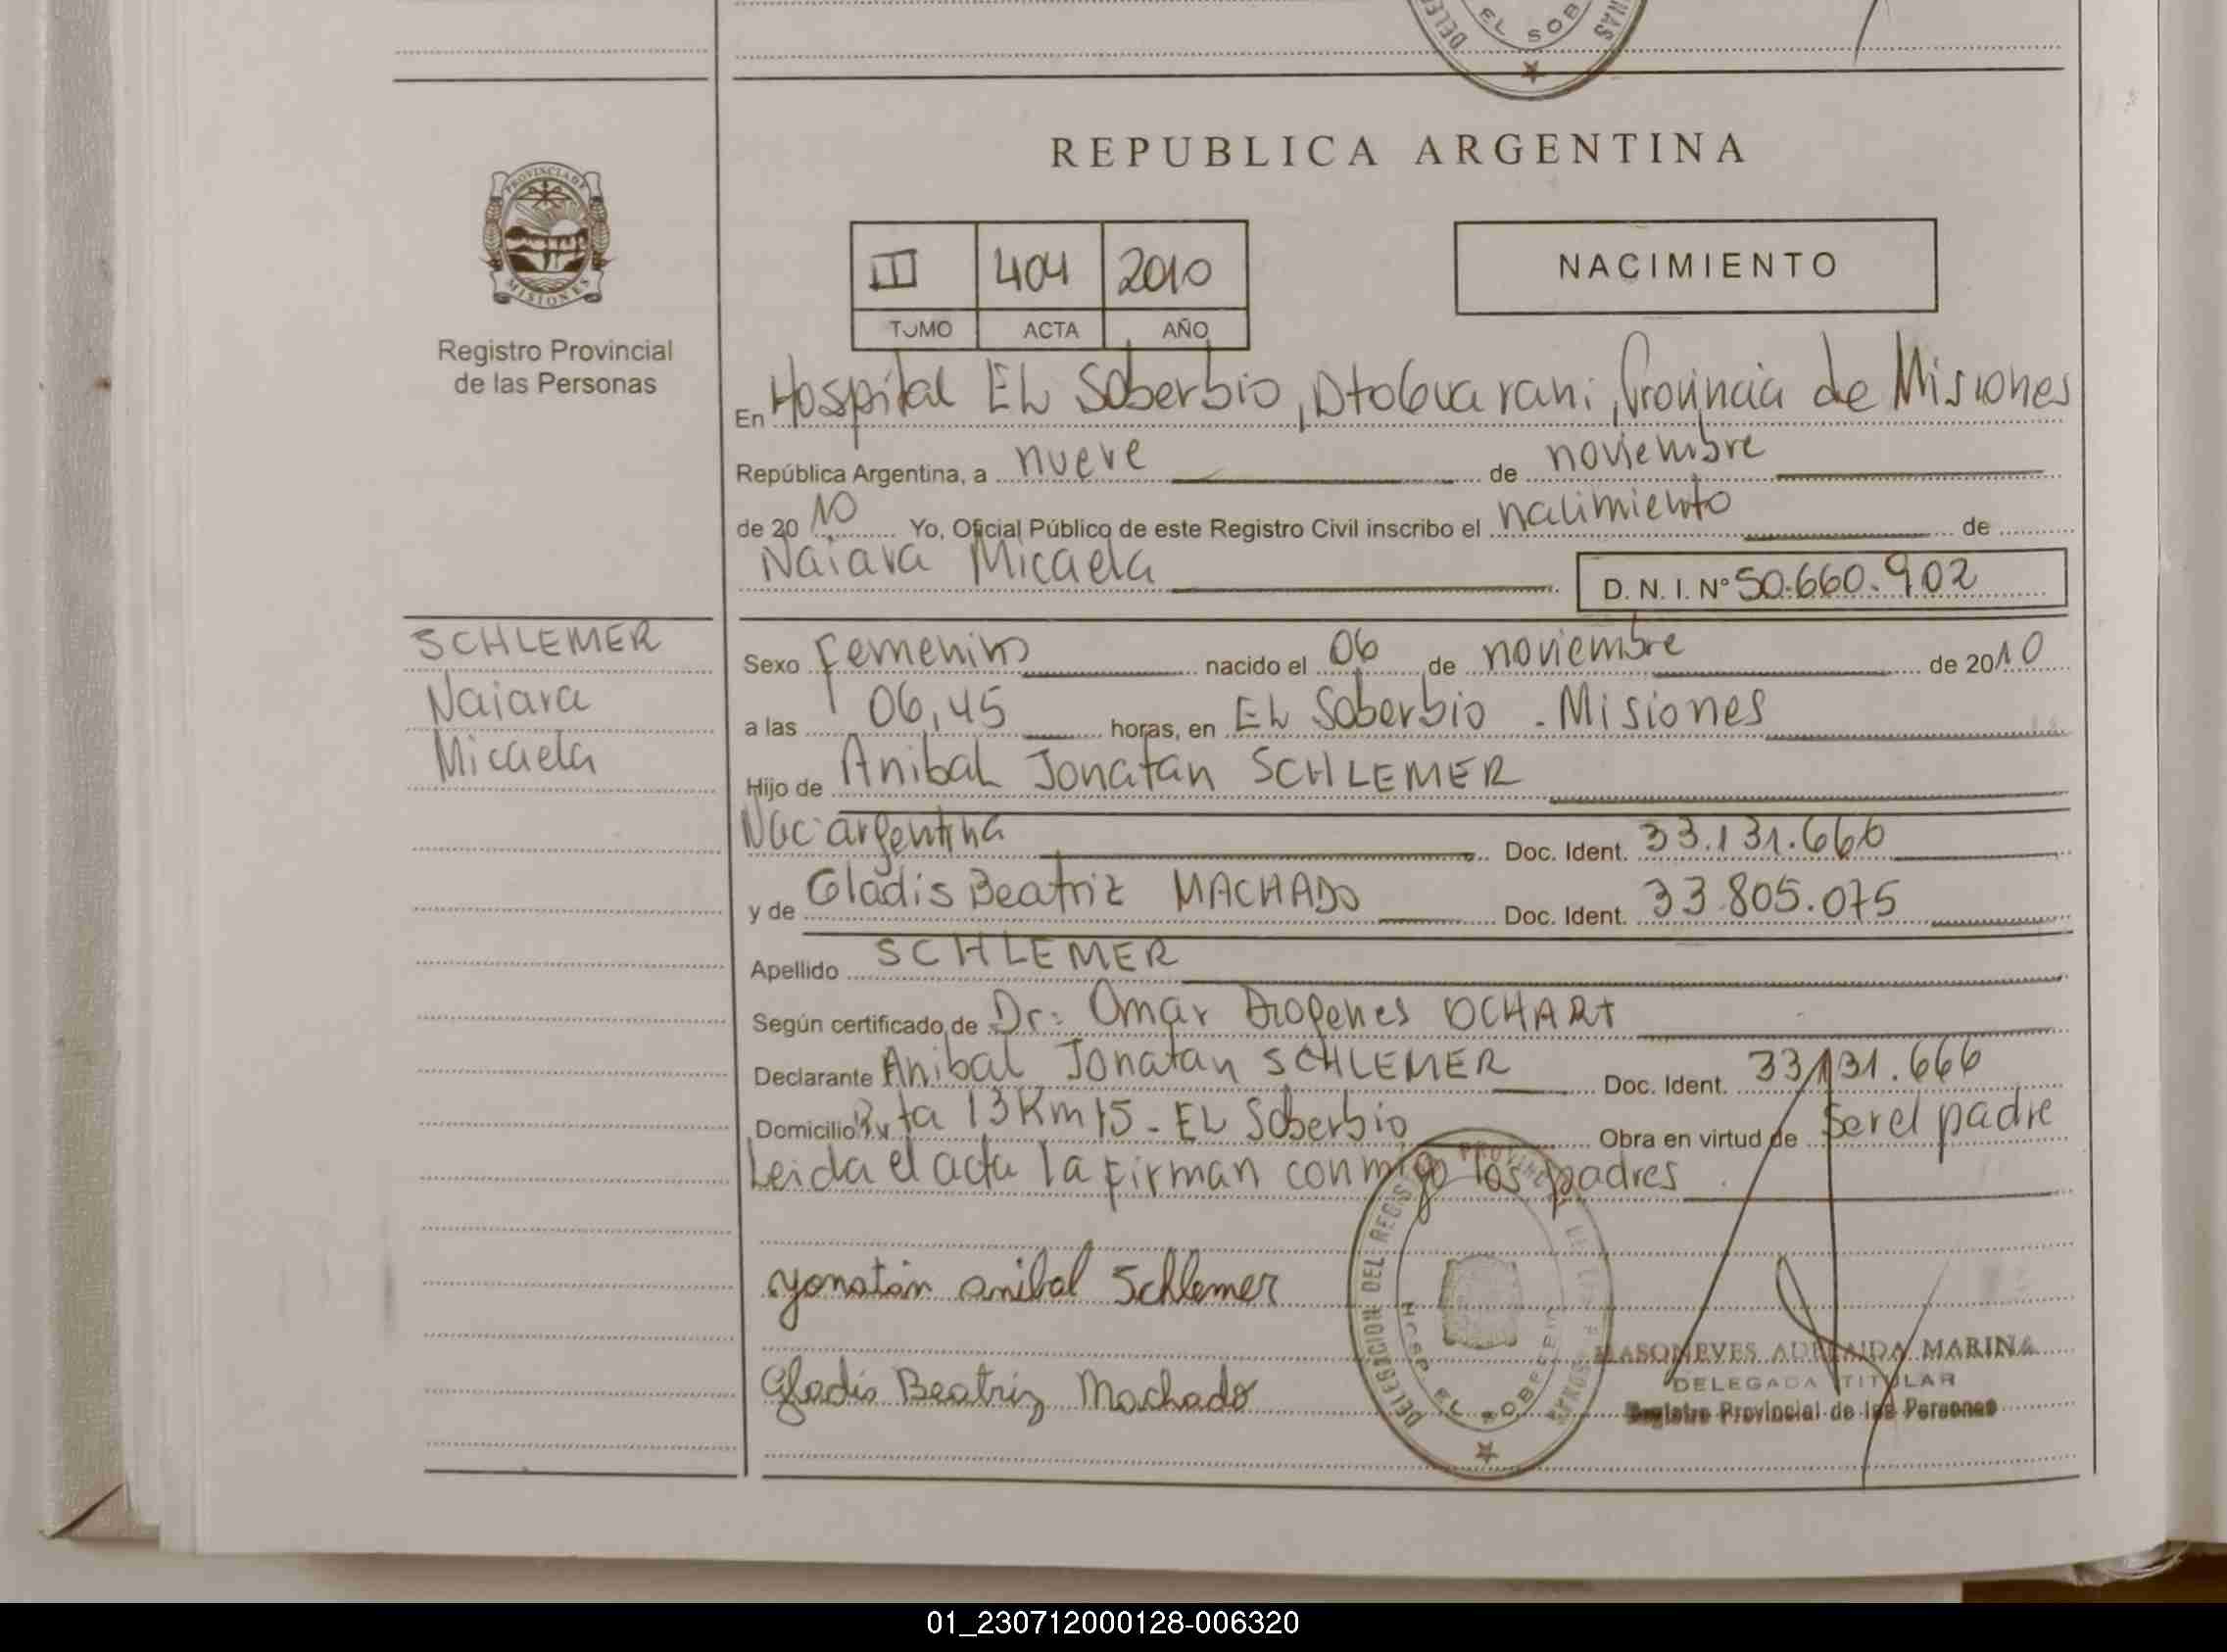 DELE
EL SOB
NAS
PROVINCIA DE
MISIONES
Registro Provincial
de las Personas
REPUBLICA ARGENTINA
II 404 2010
TOMO ACTA AÑO
NACIMIENTO
En Hospital EL Soberbio, Dto Guarani, Provincia de Misiones
República Argentina, a nueve de noviembre
de 2010 Yo, Oficial Público de este Registro Civil inscribo el nacimiento de
Naiara Micaela D. N. I. Nº 50.660.902
SCHLEMER
Naiara
Micaela
Sexo Femenino nacido el 06 de noviembre de 2010
a las 06,45 horas, en EL Soberbio - Misiones
Hijo de Anibal Jonatan SCHLEMER
Nac: argentina Doc. Ident. 33.131.666
y de Gladis Beatriz MACHADO Doc. Ident. 33.805.075
Apellido SCHLEMER
Según certificado de Dr: Omar Diogenes OCHART
Declarante Anibal Jonatan SCHLEMER Doc. Ident. 33.131.666
Domicilio Ruta 13 Km 15 - EL Soberbio Obra en virtud de Ser el padre
Leida el acta la firman conmigo los padres
yonatán anibal Schlemer
Gladis Beatriz Machado
DELEGACION DEL REGISTRO PROVINCIAL DE LAS PERSONAS
HOSP. EL SOBERBIO
MASONEVES ADELAIDA MARINA
DELEGADA TITULAR
Registro Provincial de las Personas
01_230712000128-006320